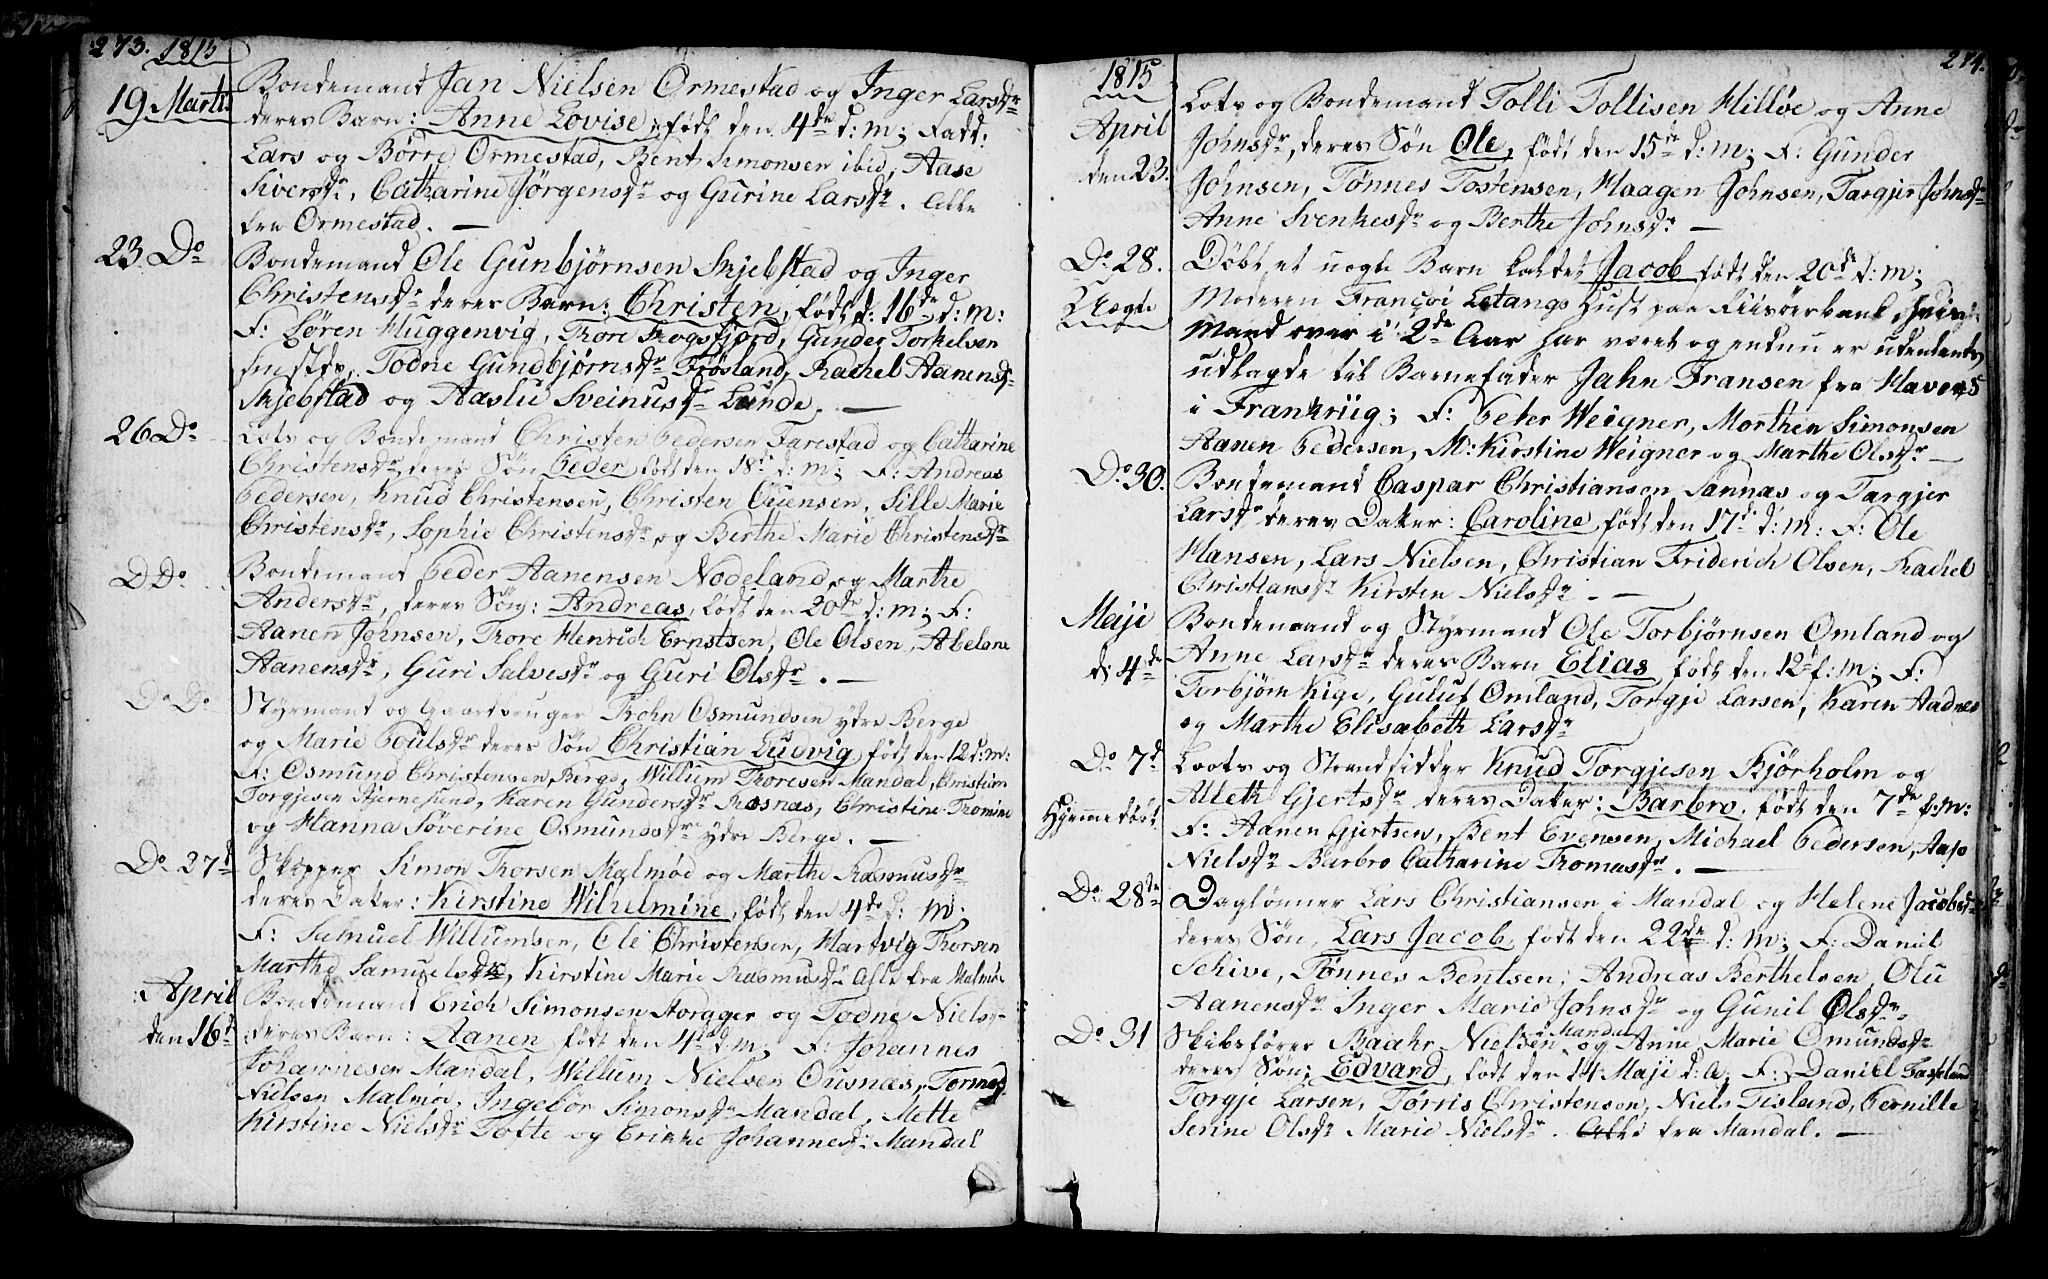 273. 1815
19 Martii
Bondemand Jan Nielsen Ormestad og Inger Larsdr
deres Barn: Anne Lovise, født den 4de d: m; Fadd:
Lars og Børre Ormestad, Bent Simonsen ibid, Aase
Siversdr, Catharine Jørgensdr og Gurine Larsdr. Alle
fra Ormestad. —
23. Do
Bondemand Ole Gunbjørnsen Skjebstad og Inger
Christensdr deres Barn: Christen, født d: 16de d: m:
F: Søren Huggenvig, Thore Trogsfjord, Gunder Torkelsen
Todne Gundbjørnsdr Frøsland, Rachel Aanensdr
Skjebstad og Aaslu Sveinusdr Lunde. —
26 Do
Lots og Bondemand Christen Pedersen Farestad og Catharine
Christensdr, deres Søn Peder født den 18de d: m; F: Andreas
Pedersen, Knud Christensen, Christen Ouensen, Sille Marie
Christensdr, Sophie Christensdr og Berthe Marie Christensdr
D Do
Bondemand Peder Aanensen Nodeland og Marthe
Andersdr, deres Søn: Andreas, født den 20de d: m; F:
Aanen Johnsen, Thore Henrich Ernstsen, Ole Olsen, Abelone
Aanensdr, Guri Salvesdr og Guri Olsdr. —
Do Do
Styrmand og Gaardbruger Thohn Osmundsen ydre Berge
og Marie Poulsdr deres Søn Christian Ludvig født den 12 d: m:
F: Osmund Christensen Berge, Willum Thoresen Mandal, Christian
Torgjesen Stjernesund, Karen Gundersdr Risnas, Christine Thomine
og Hanna Søverine Osmundsdr ydre Berge. —
Do 27d
Skipper Simon Thorsen Malmøe og Marthe Rasmusdr
deres Dater: Kirstine Wilhelmine, født den 4de d: m;
F: Samuel Willumsen, Ole Christensen, Hartvig Thorsen
Marthe Samuelsdr, Kirstine Marie Rasmusdr Alle fra Malmøe
April
den 16d
Bondemand Erich Simonsen og Todne Niels-
deres Barn: Aanen født den 4d d: m; F: Johannes
Johannesen Mandal, Willum Nielsen Ousnas, Tormod
Nielsen Malmøe, Ingebør Simonsdr Mandal, Mette
Kirstine Nielsdr Tofte og Erikke Johannesd: Mandal
274.
1815
April
den 23.
Lots og Bondemand Tolli Tollisen Hilløe og Anne
Johnsdr, deres Søn Ole, født den 15de d: m; F: Gunder
Johnsen, Tønnes Tostensen, Haagen Johnsen, Targjer Johnsdr
Anne Svenkesdr og Berthe Johnsdr —
Do 28.
Uægte
Døbt et uegte Barn kaldet Jacob født den 20de d: m;
Moderen Françoi Letangs Hust paa Riisøerbank, hvis
Mand over i 2de Aar har været og endnu er udenlands,
udlagde til Barnefader Jahn Fransen fra Havens
i Frankriig; F: Peter Weigner, Morthen Simonsen
Aanen Pedersen, M: Kirstine Weigner og Marthe Olsdr —
Do 30.
Bondemand Caspar Christiansen Sannas og Targjer
Larsdr deres Dater: Caroline, født den 17de d: m: F: Ole
Hansen, Lars Nielsen, Christian Friderich Olsen, Rachel
Christiansdr Kirsten Nielsdr. —
Maji
d: 4de
Bondemand og Styrmand Ole Torbjørnsen Omland og
Anne Larsdr deres Barn Elias, født den 12te f: m; F:
Torbjørn Kige, Guluf Omland, Torgje Larsen, Karen Aadnes
og Marthe Elisabeth Larsdr
Do 7d
Hjemmedøbt
Loots og Strandsidder Knud Torgjesen Kjørholm og
Alleth Gjertsdr deres Dater: Barbro. født den 7de f: m:
F: Aanen Gjertsen, Bent Evensen, Michael Pedersen, Aase
Nielsdr Barbro Catharine Thomasdr. —
Do 28de
Daglønner Lars Christiansen i Mandal og Helene Jacobsdr
deres Søn, Lars Jacob, født den 22de d: m; F: Daniel
Schive, Tønnes Bentsen, Andreas Berthelsen, Olu
Aanensdr Inger Marie Johnsdr og Gunil Olsdr.
Do 31
Skibsfører Baahr Nielsen i Mandal og Anne Marie Omundsdr
deres Søn: Edvard, født den 14 Maji d: A; F: Daniel
Torgje Larsen, Tørris Christensen, Niels Tisland, Pernille
Serine Olsdr Marie Nielsdr. Alle fra Mandal. —